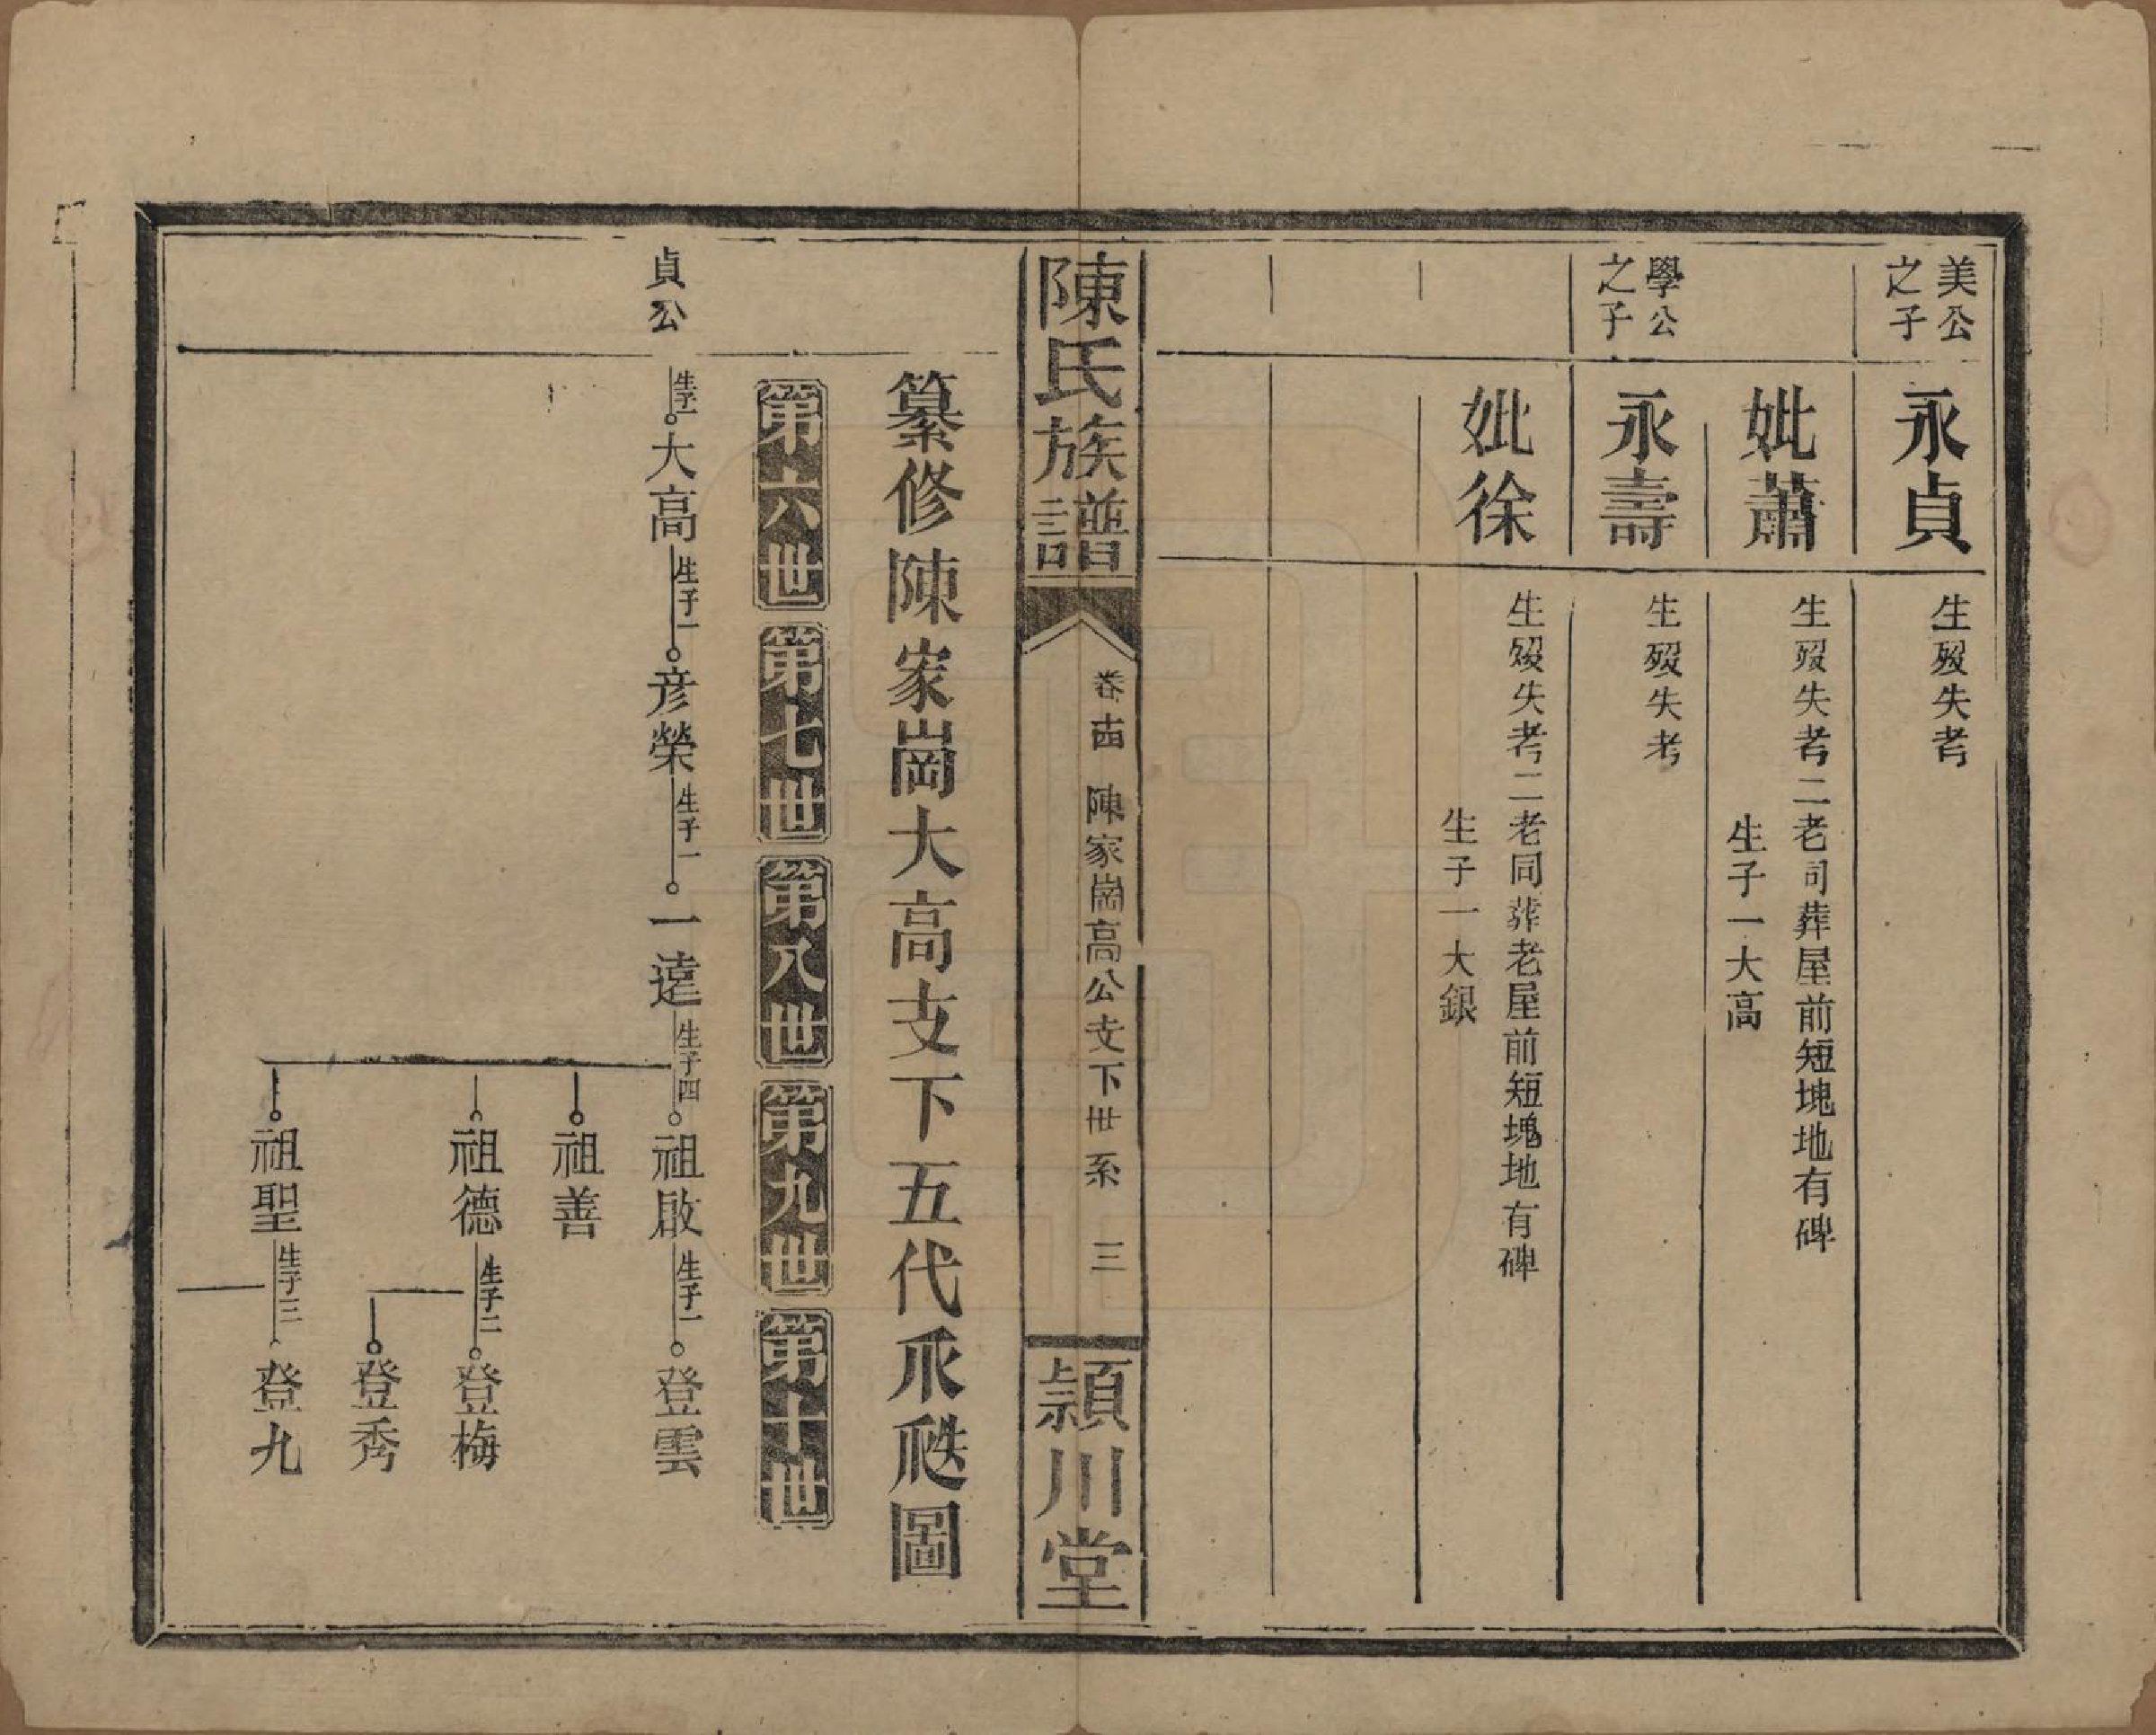 美公
之子
永貞
生殁失考
妣蕭
生殁失考二老司葬屋前短塊地有碑
生子一大高
學公
之子
永壽
生殁失考
妣徐
生殁失考二老同葬老屋前短塊地有碑
生子一大銀
陳氏族譜
卷十四 陳家崗高公支下世系 三
潁川堂
纂修陳家崗大高支下五代永𤓰圖
第六世 第七世 第八世 第九世 第十世
貞公
生子一 大高 生子一 彦榮 生子一 一逵 生子四 祖啟 生子一 登雲
祖善
祖德 生子二 登梅
登秀
祖聖 生子三 登九